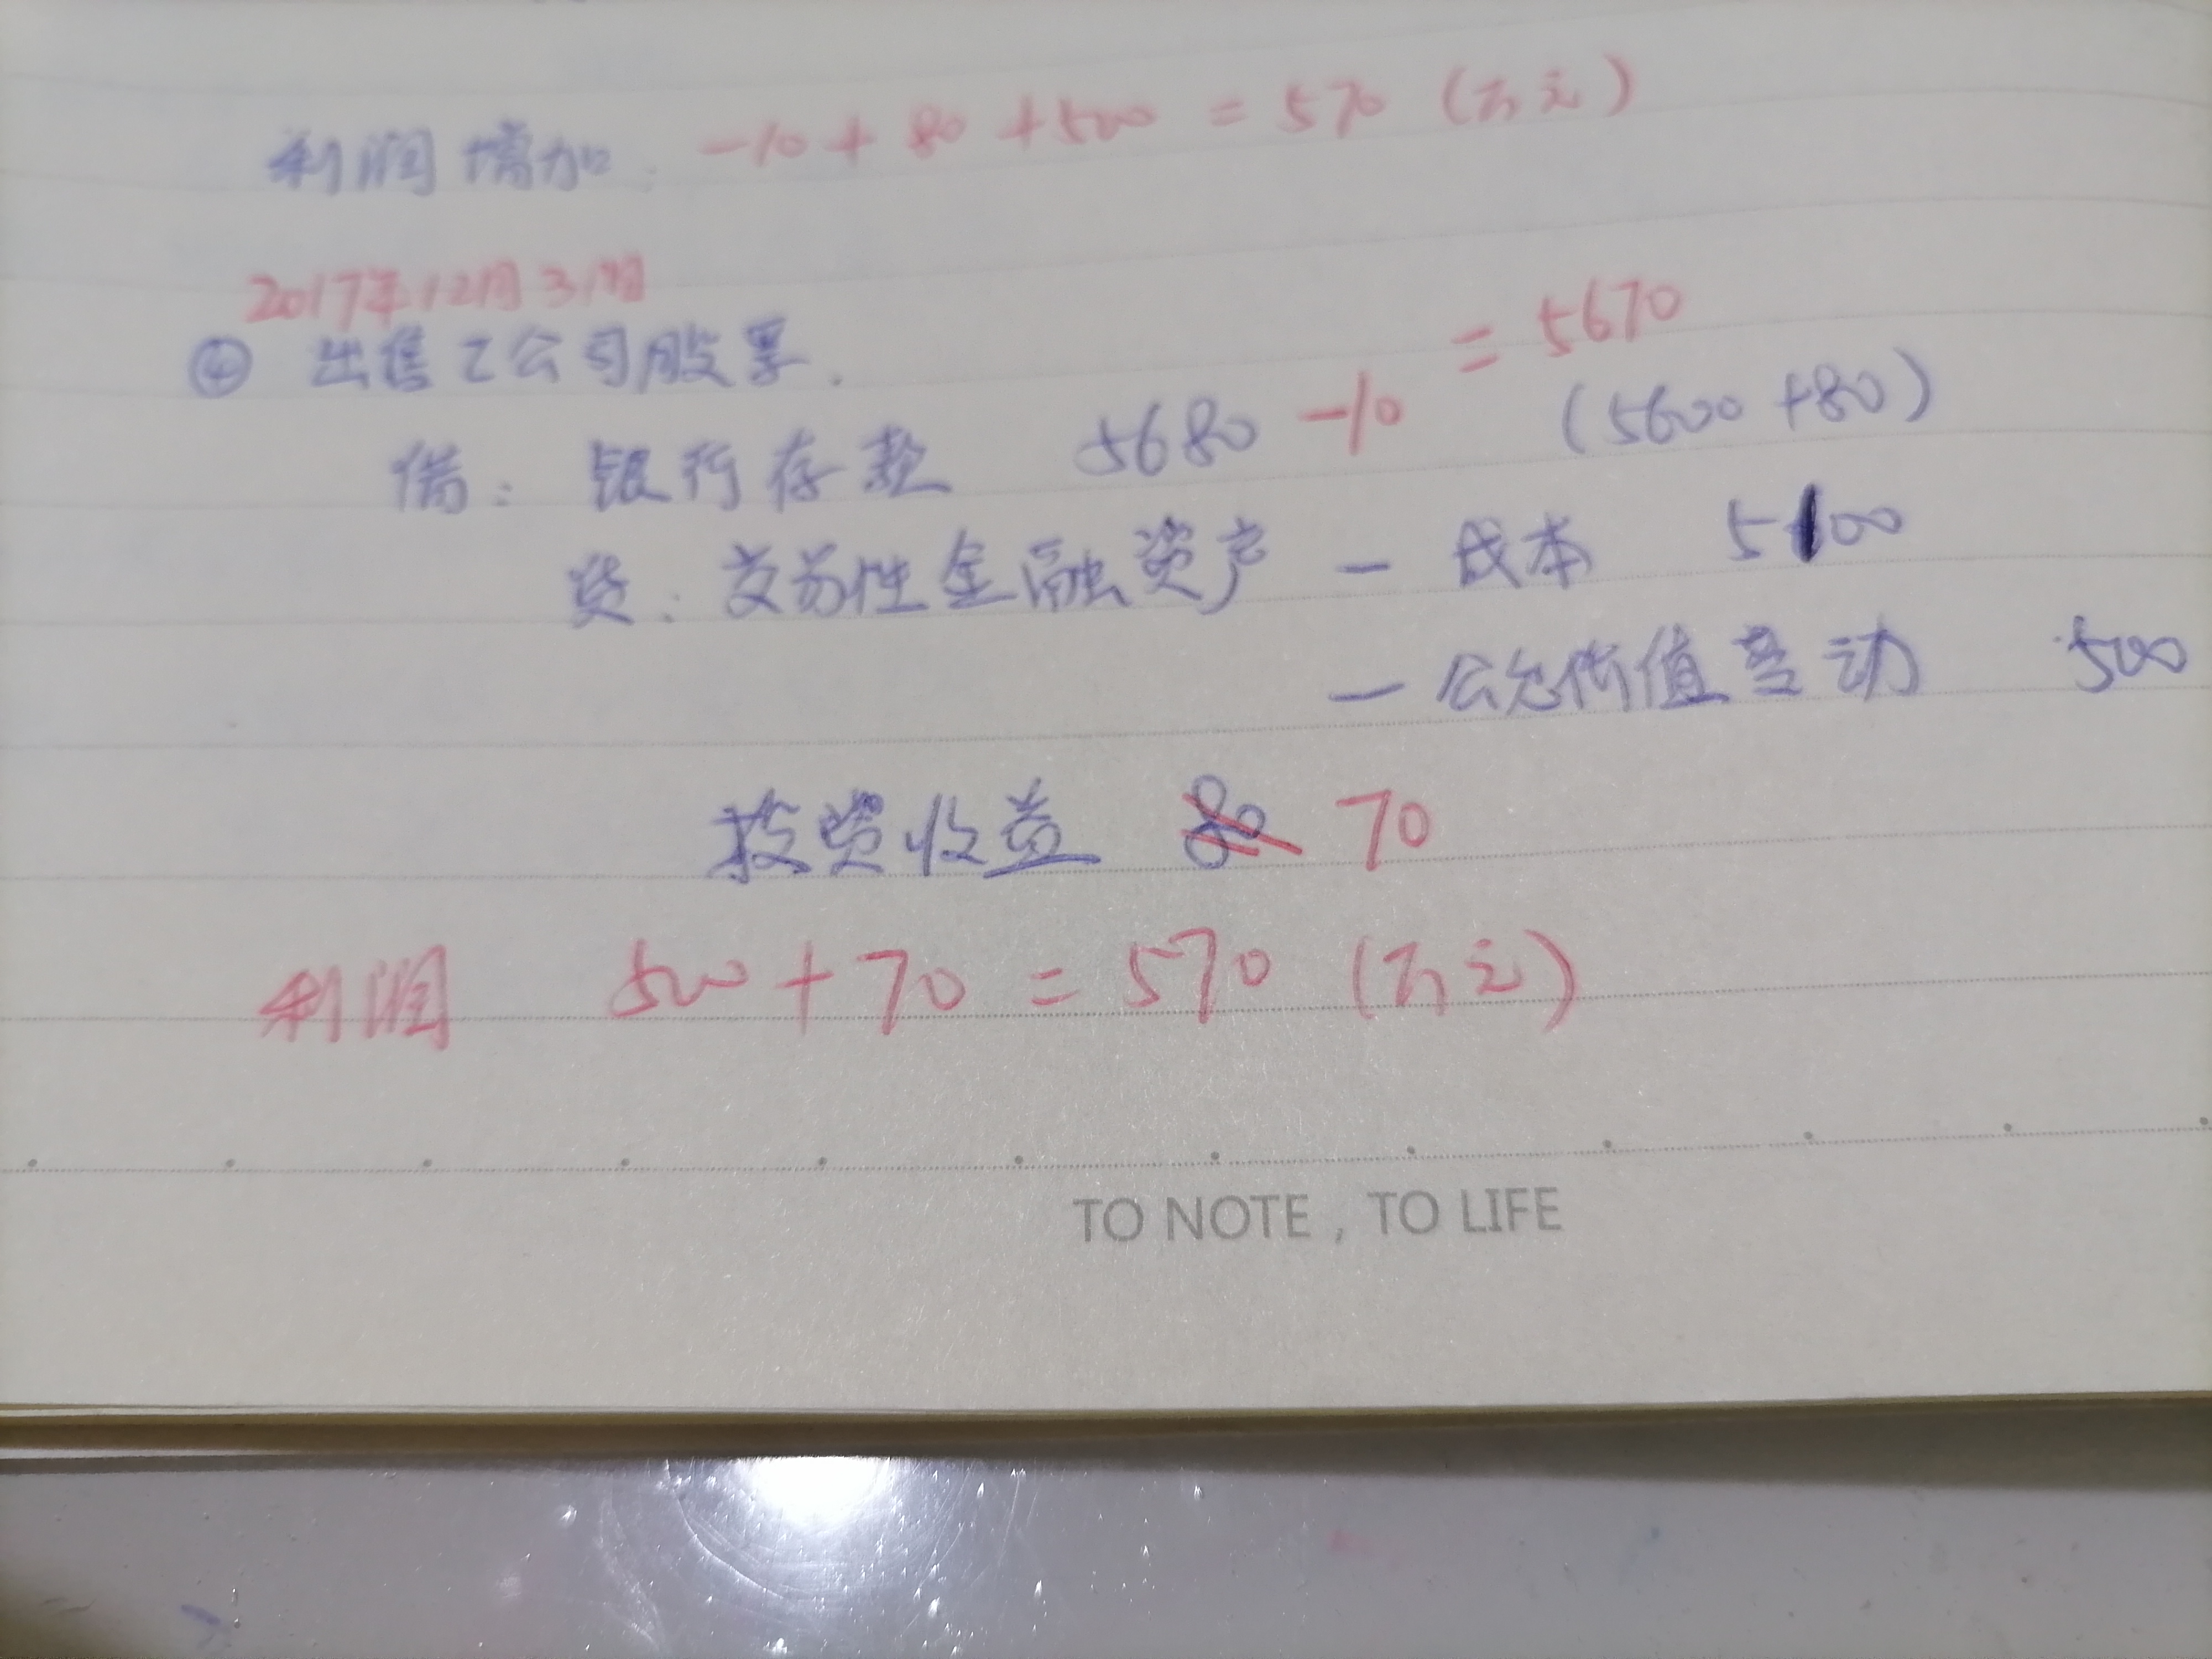 利润增加: -10 + 80 + 500 = 570 (万元)
2017年12月31日
④ 出售乙公司股票.
借: 银行存款 5680 -10 = 5670 (5600+80)
贷: 交易性金融资产 — 成本 5100
— 公允价值变动 500
投资收益 80 70
利润 500 + 70 = 570 (万元)
TO NOTE , TO LIFE